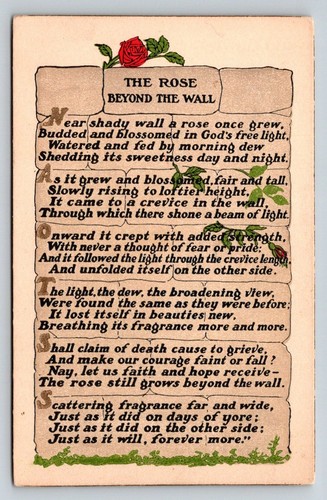 THE ROSE
BEYOND THE WALL
Near shady wall a rose once grew,
Budded and blossomed in God's free light,
Watered and fed by morning dew
Shedding its sweetness day and night.
As it grew and blossomed, fair and tall,
Slowly rising to loftier height,
It came to a crevice in the wall,
Through which there shone a beam of light.
Onward it crept with added strength,
With never a thought of fear or pride;
And it followed the light through the crevice length
And unfolded itself on the other side.
The light, the dew, the broadening view,
Were found the same as they were before;
It lost itself in beauties new,
Breathing its fragrance more and more.
Shall claim of death cause to grieve,
And make our courage faint or fall?
Nay, let us faith and hope receive—
The rose still grows beyond the wall.
Scattering fragrance far and wide,
Just as it did on days of yore;
Just as it did on the other side;
Just as it will, forever more."